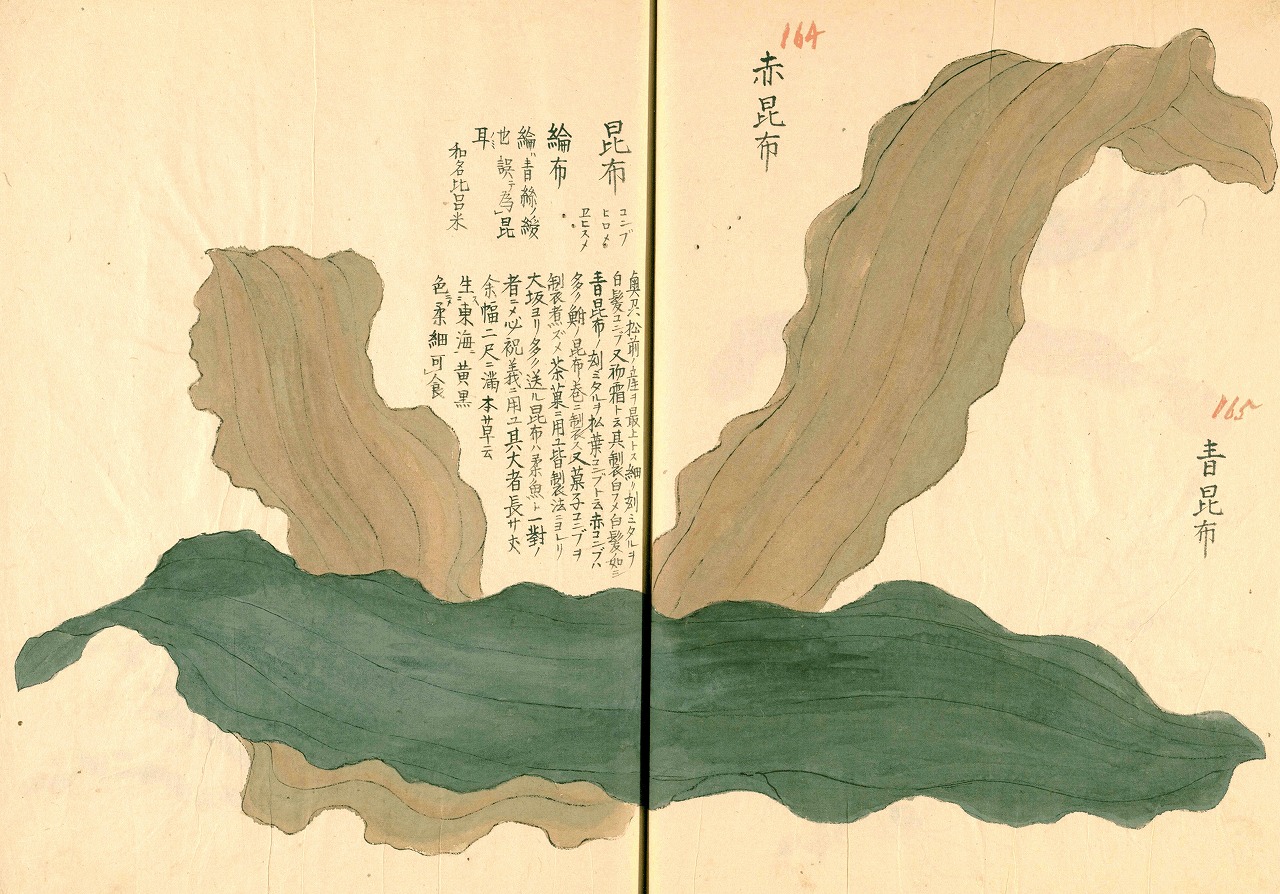 164
赤昆布
165
青昆布
昆布
コンブ
ヒロメ
エビスメ
綸布
綸ハ青絲ノ綬
也誤テ為昆
耳
和名比呂米
奥州松前ノ産ヲ最上トス細ク刻ミタルヲ
白髪コンブ又初霜ト云其製白フメ白髪ノ如シ
青昆布ノ刻ミタルヲ松葉コンブト云赤コンブハ
多ク鮒ノ昆布巻ニ製ス又菓子コンブヲ
製煮ズメ茶菓ニ用ユ皆製法ニヨレリ
大坂ヨリ多ク送ル昆布ハ柔魚ト一對ノ
者ニメ必祝義ニ用ユ其大者長サ丈
余幅二尺ニ満本草云
生ス東海ニ黄黒
色ニメ柔細可食